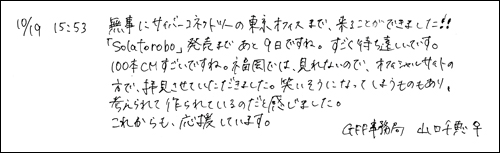 10/19 15:53 無事にサイバーコネクトツーの東京オフィスまで、来ることができました!!
「Solatorobo」発売まであと9日ですね。すごく待ち遠しいです。
100本CMすごいですね。福岡では、見れないので、オフィシャルサイトの
方で、拝見させていただきました。笑いそうになってしまうものもあり、
考えられて作られているのだと感じました。
これからも、応援しています。
GFF事務局 山口千恵